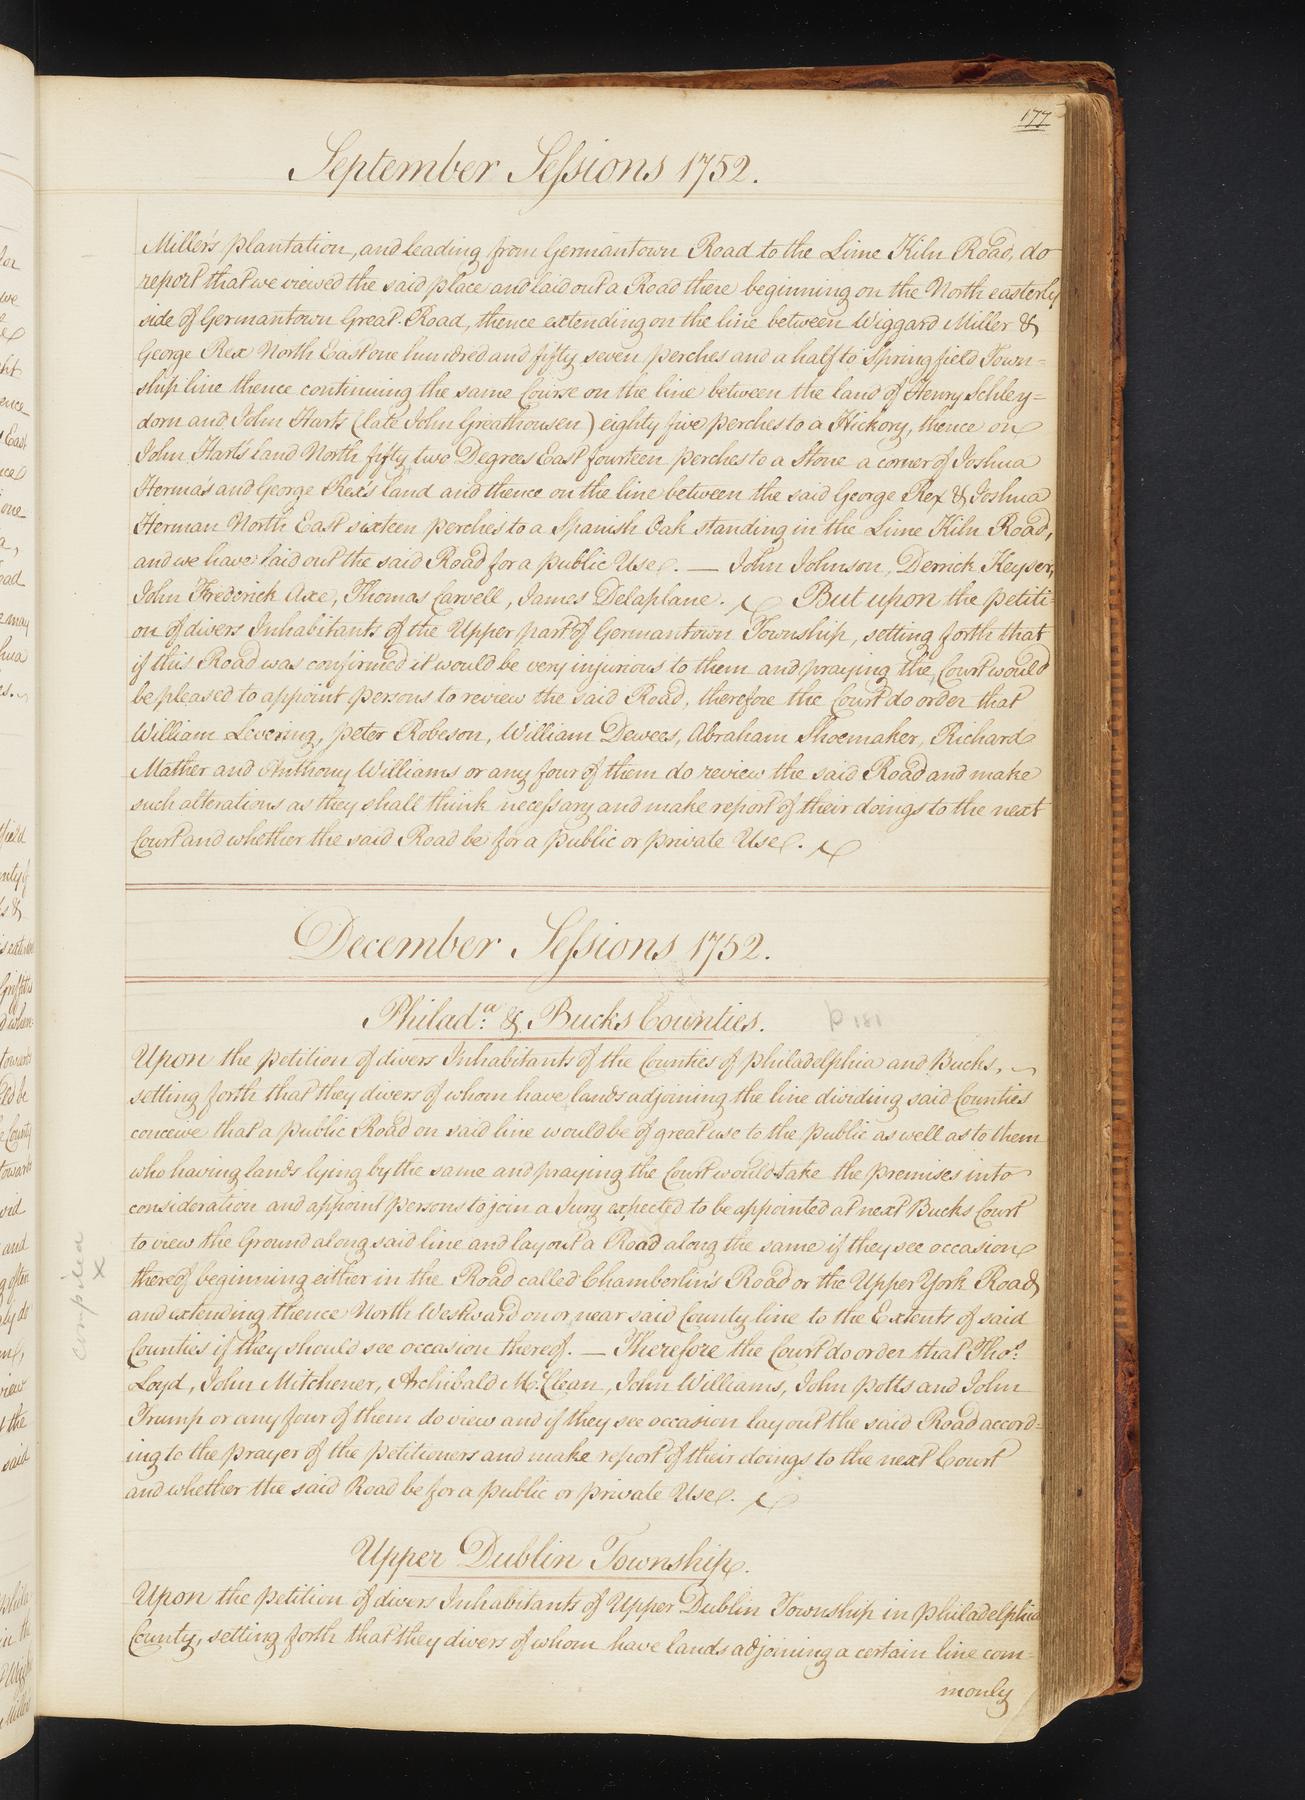 177
September Sessions 1752.
Miller's plantation, and leading from Germantown Road to the Lime Kiln Road, do
report that we viewed the said place and laid out a Road there beginning on the North easterly
side of Germantown Great Road, thence extending on the line between Wiggard Miller &
George Rex North East one hundred and fifty seven perches and a half to Springfield Town=
ship line thence continuing the same Course on the line between the land of Henry Schley=
dorn and John Harts (late John Greathousen) eighty five perches to a Hickory, thence on
John Hart's land North fifty two Degrees East fourteen perches to a Stone a corner of Joshua
Herma's and George Rex's land and thence on the line between the said George Rex & Joshua
Herman North East sixteen perches to a Spanish Oak standing in the Lime Kiln Road,
and we have laid out the said Road for a public Use. — John Johnson, Derrick Keyser,
John Frederick Axe, Thomas Carvell, James Delaplane. But upon the petiti=
on of divers Inhabitants of the Upper part of Germantown Township, setting forth that
if this Road was confirmed it would be very injurious to them and praying the Court would
be pleased to appoint persons to review the said Road, therefore the Court do order that
William Levering, Peter Robeson, William Dewees, Abraham Shoemaker, Richard
Mather and Anthony Williams or any four of them do review the said Road and make
such alterations as they shall think necessary and make report of their doings to the next
Court and whether the said Road be for a public or private Use.
December Sessions 1752.
Philad.a & Bucks Counties.
p 181
Upon the petition of divers Inhabitants of the Counties of Philadelphia and Bucks,
setting forth that they divers of whom have lands adjoining the line dividing said Counties
conceive that a public Road on said line would be of great use to the public as well as to them
who having lands lying by the same and praying the Court would take the premises into
consideration and appoint persons to join a Jury expected to be appointed at next Bucks Court
to view the Ground along said line and lay out a Road along the same if they see occasion
thereof beginning either in the Road called Chamberlin's Road or the Upper York Road
and extending thence North Westward on or near said County line to the Extents of said
Counties if they should see occasion thereof. — Therefore the Court do order that Tho.s
Loyd, John Mitchener, Archibald McClean, John Williams, John Potts and John
Trump or any four of them do view and if they see occasion lay out the said Road accord=
ing to the prayer of the petitioners and make report of their doings to the next Court
and whether the said Road be for a public or private Use.
compiled
x
Upper Dublin Township.
Upon the petition of divers Inhabitants of Upper Dublin Township in Philadelphia
County, setting forth that they divers of whom have lands adjoining a certain line com=
monly